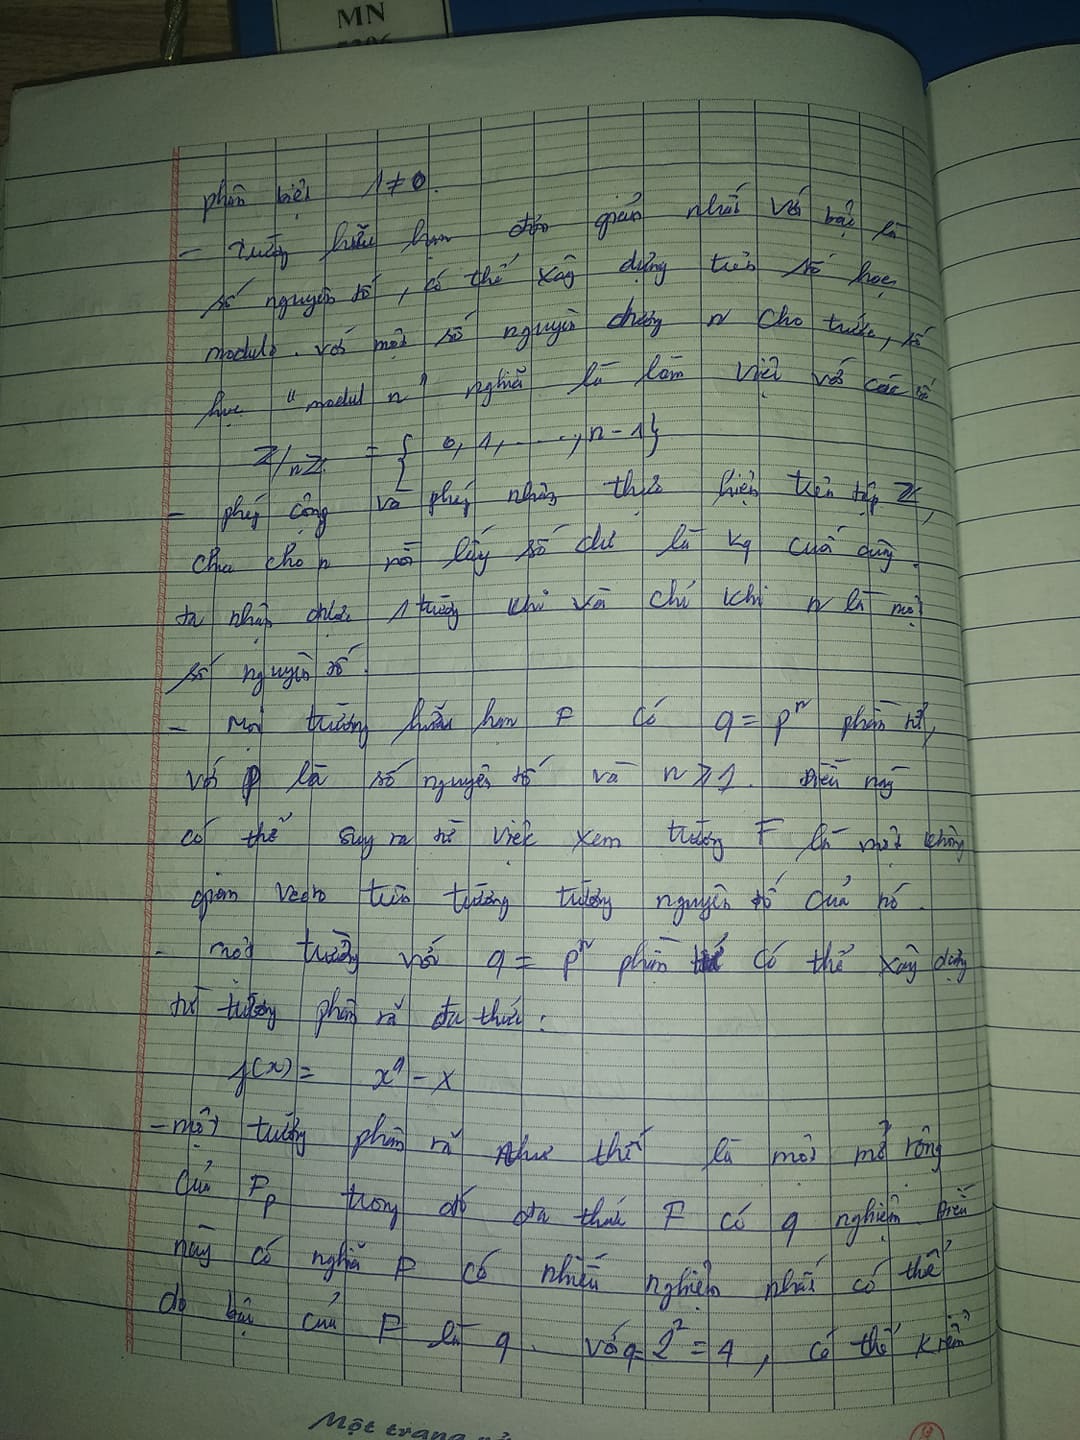 MN
phân biệt 1 ≠ 0.
- Trường hữu hạn đơn giản nhất với bậc là
số nguyên tố, có thể xây dựng trên số học
modulo. với một số nguyên dương n cho trước, số
học "modul n" nghĩa là làm việc với các số
Z/nZ = { 0, 1, ....., n-1}
- phép cộng và phép nhân thực hiện trên tập Z,
chia cho n rồi lấy số dư là kq cuối cùng.
ta nhận được 1 trường khi và chỉ khi n là một
số nguyên tố.
- Mọi trường hữu hạn F có q = pⁿ phần tử,
với p là số nguyên tố và n ≥ 1. Điều này
có thể suy ra từ việc xem trường F là một không
gian vecto trên trường trường nguyên tố của nó.
- một trường với q = pⁿ phần tử có thể xây dựng
từ trường phân rã đa thức:
f(x) = x^q - x
- một trường phân rã như thế là một mở rộng
của Fₚ trong đó đa thức F có q nghiệm. Điều
này có nghĩa F có nhiều nghiệm nhất có thể
do bậc của F là q. với q = 2² = 4, có thể kiểm
Một trang